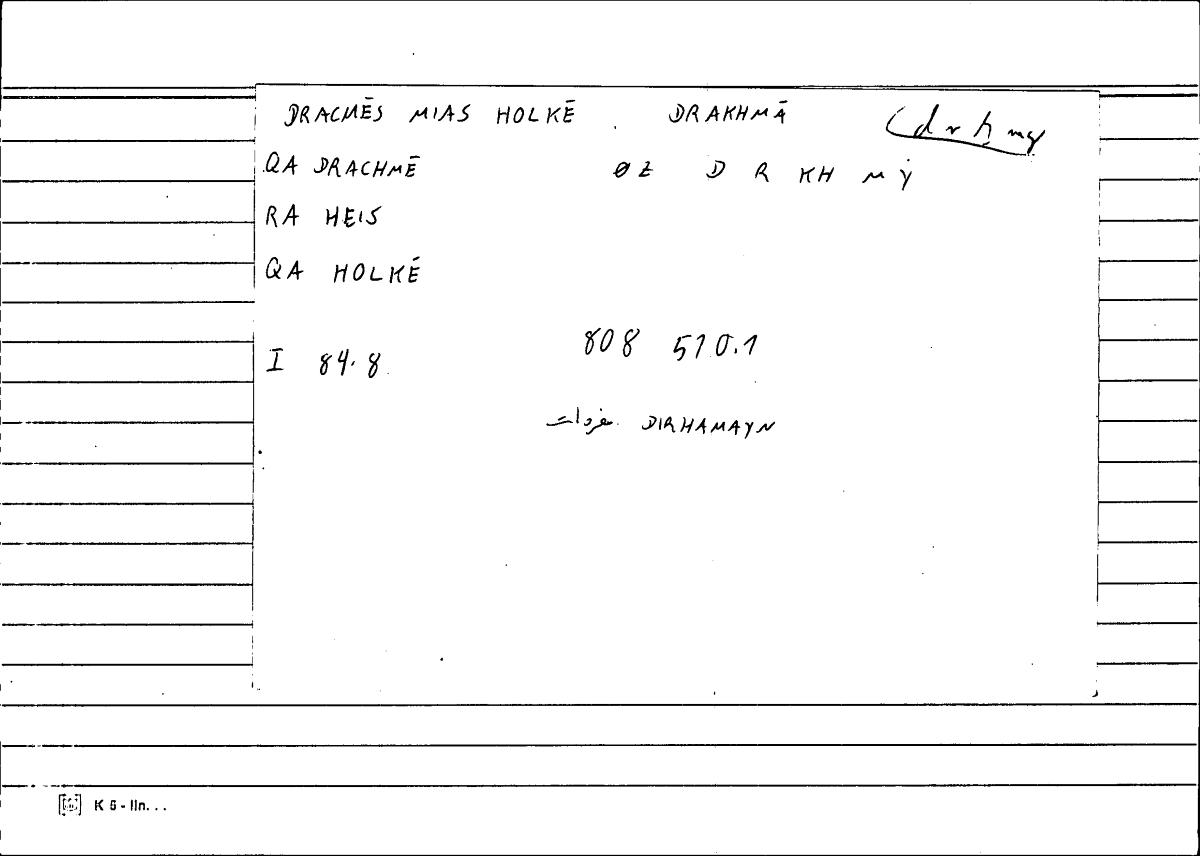 DRACMĒS MIAS HOLKĒ DRAKHMĀ (drḫmy
QA DRACHMĒ ØZ D R KH M Ẏ
RA HEIS
QA HOLKĒ
808 510.1
I 84.8
مفردات DIRHAMAYN
K 5 - lln...